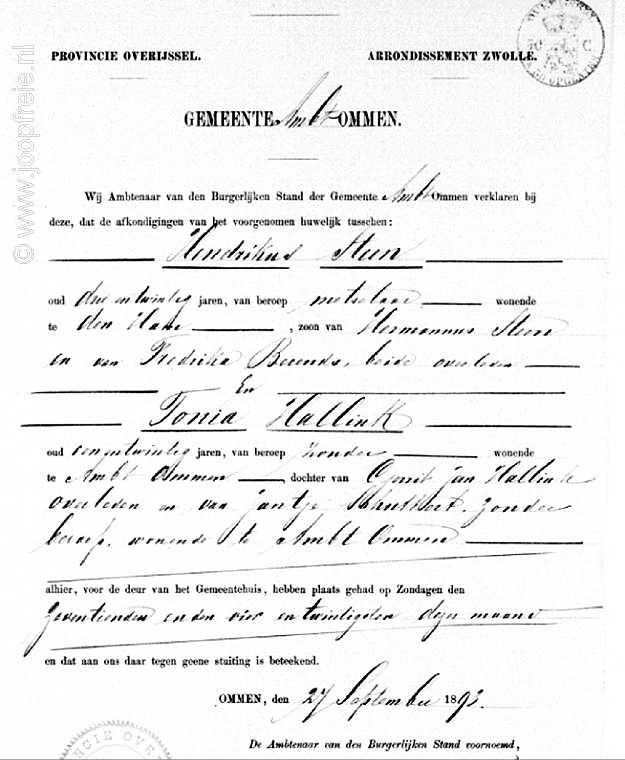 PROVINCIE OVERIJSSEL. ARRONDISSEMENT ZWOLLE.
GEMEENTE Ambt OMMEN.
Wij Ambtenaar van den Burgerlijken Stand der Gemeente Ambt Ommen verklaren bij
deze, dat de afkondigingen van het voorgenomen huwelijk tusschen:
Hendrikus Steen
oud drie en twintig jaren, van beroep metselaar wonende
te den Ham, zoon van Hermannus Steen
en van Fredrika Berends, beide overleden
En
Tonia Hallink
oud een en twintig jaren, van beroep zonder wonende
te Ambt Ommen, dochter van Gerrit Jan Hallink
overleden en van Jantje Schutbert. zonder
beroep, wonende te Ambt Ommen
alhier, voor de deur van het Gemeentehuis, hebben plaats gehad op Zondagen den
Zeventienden en den vier en twintigsten dezer maand
en dat aan ons daar tegen geene stuiting is beteekend.
OMMEN, den 27 September 1893.
De Ambtenaar van den Burgerlijken Stand voornoemd,
© www.joopfreie.nl